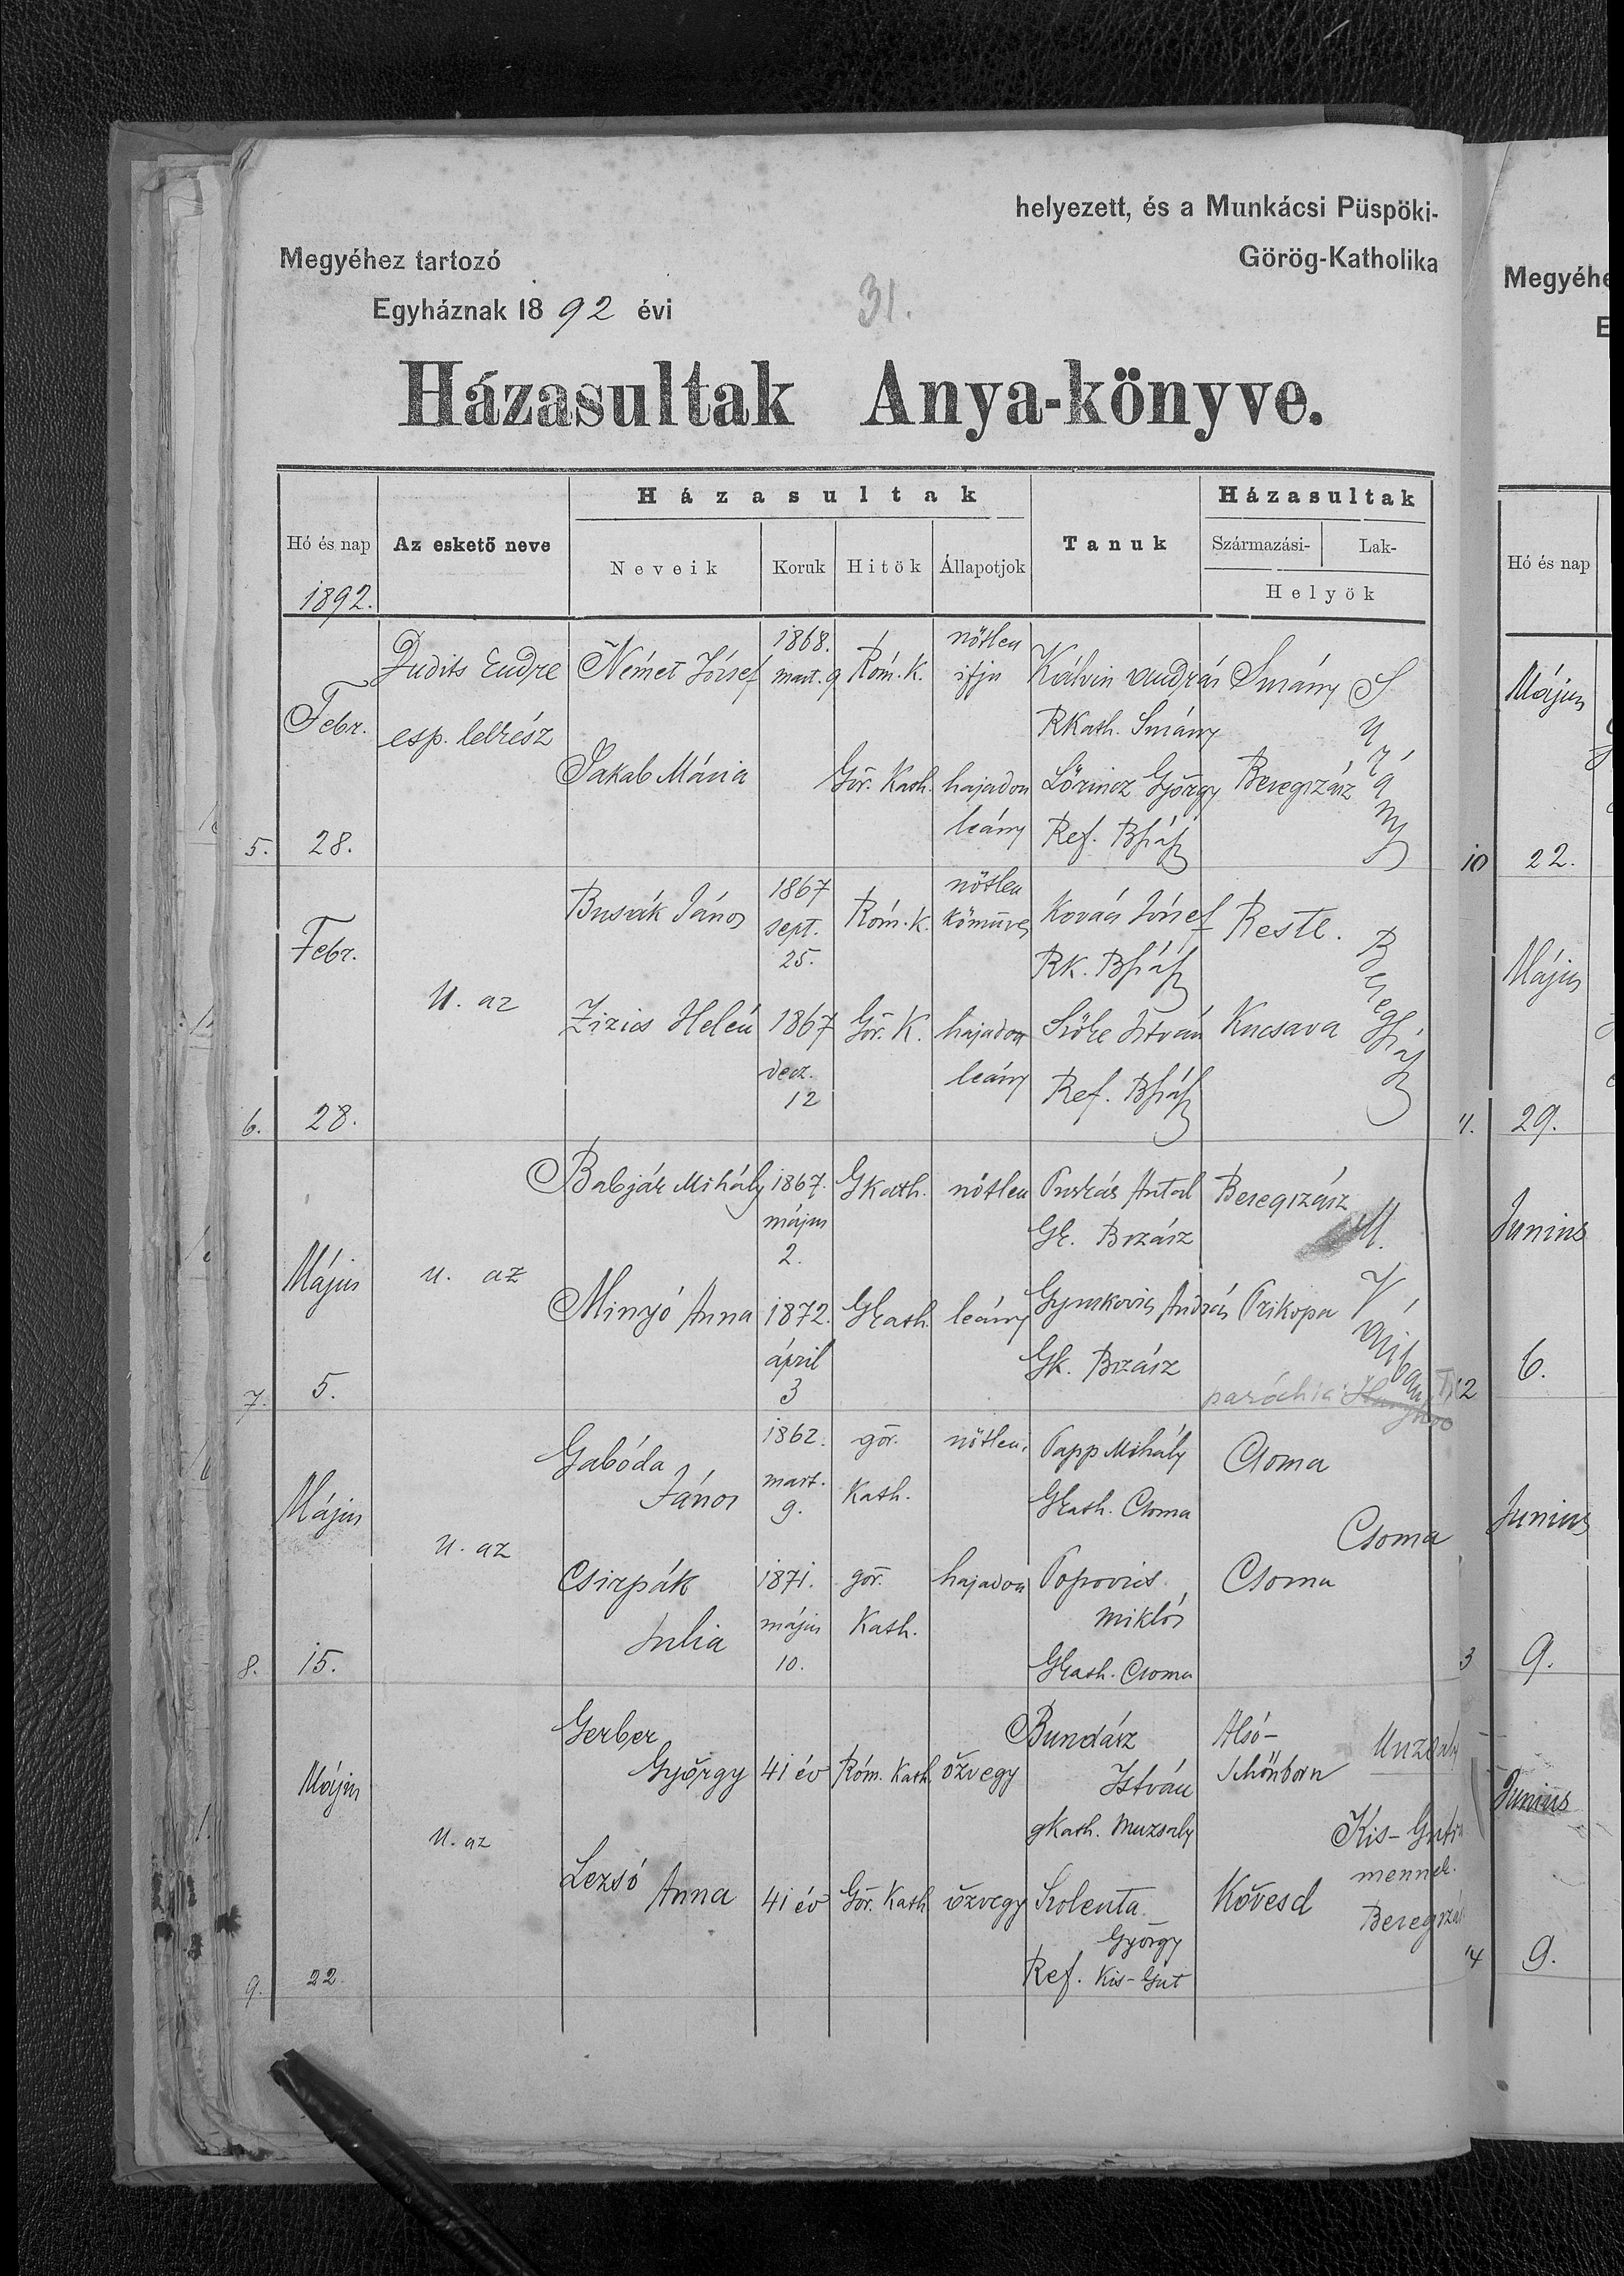 helyezett, és a Munkácsi Püspöki-
Megyéhez tartozó
Görög-Katholika
Egyháznak 1892 évi
31.
Házasultak Anya-könyve.
Hó és nap
1892.
Az eskető neve
Házasultak
Neveik
Koruk
Hitök
Állapotjok
Tanuk
Házasultak
Származási-
Lak-
Helyök
5.
Febr.
28.
Dudits Endre
esp. lelkész
Német József
1868.
mart. 9
Róm. K.
nőtlen
ifju
Kálvin András
RKath. Surány
Surány
Surány
Jakab Mária
Gör. Kath.
hajadon
leány
Lőrincz György
Ref. Bhász
Beregszász
6.
Febr.
28.
U. az
Busák János
1867
sept.
25.
Róm. K.
nőtlen
kőmüves
Kovács József
RK. Bhász
Zizics Helén
1867
decz.
12
Gör. K.
hajadon
leány
Szőke István
Ref. Bhász
Kucsava
7.
Május
5.
u. az
Babják Mihály
1867.
május
2.
GKath.
nőtlen
Puskás Antal
Gk. Bszász
Beregszász
M.
Minyó Anna
1872.
ápril
3
GKath.
leány
András
Gk. Bszász
Prikopa
paróchia
8.
Május
15.
u. az
Gabóda
János
1862.
mart.
9.
gör.
Kath.
nőtlen.
Papp Mihály
GKath. Csoma
Csoma
Csoma
Csirpák
Julia
1871.
május
10.
gör.
Kath.
hajadon
Popovics
Miklós
GKath. Csoma
Csoma
9.
Május
22
U. az
Gerber
György
41 év
Róm. Kath.
özvegy
Bundász
István
gKath. Muzsaly
Alsó-
Schönborn
Muzsaly
Kis-
mennek.
Lezsó
Anna
41 év
Gör. Kath
özvegy
Szolenta
György
Ref. Kis-Gut
Kövesd
Megyéhe
E
Hó és nap
10
Május
22.
Május
29.
12
Junius
6.
3
Junius
9.
4
Junius
9.